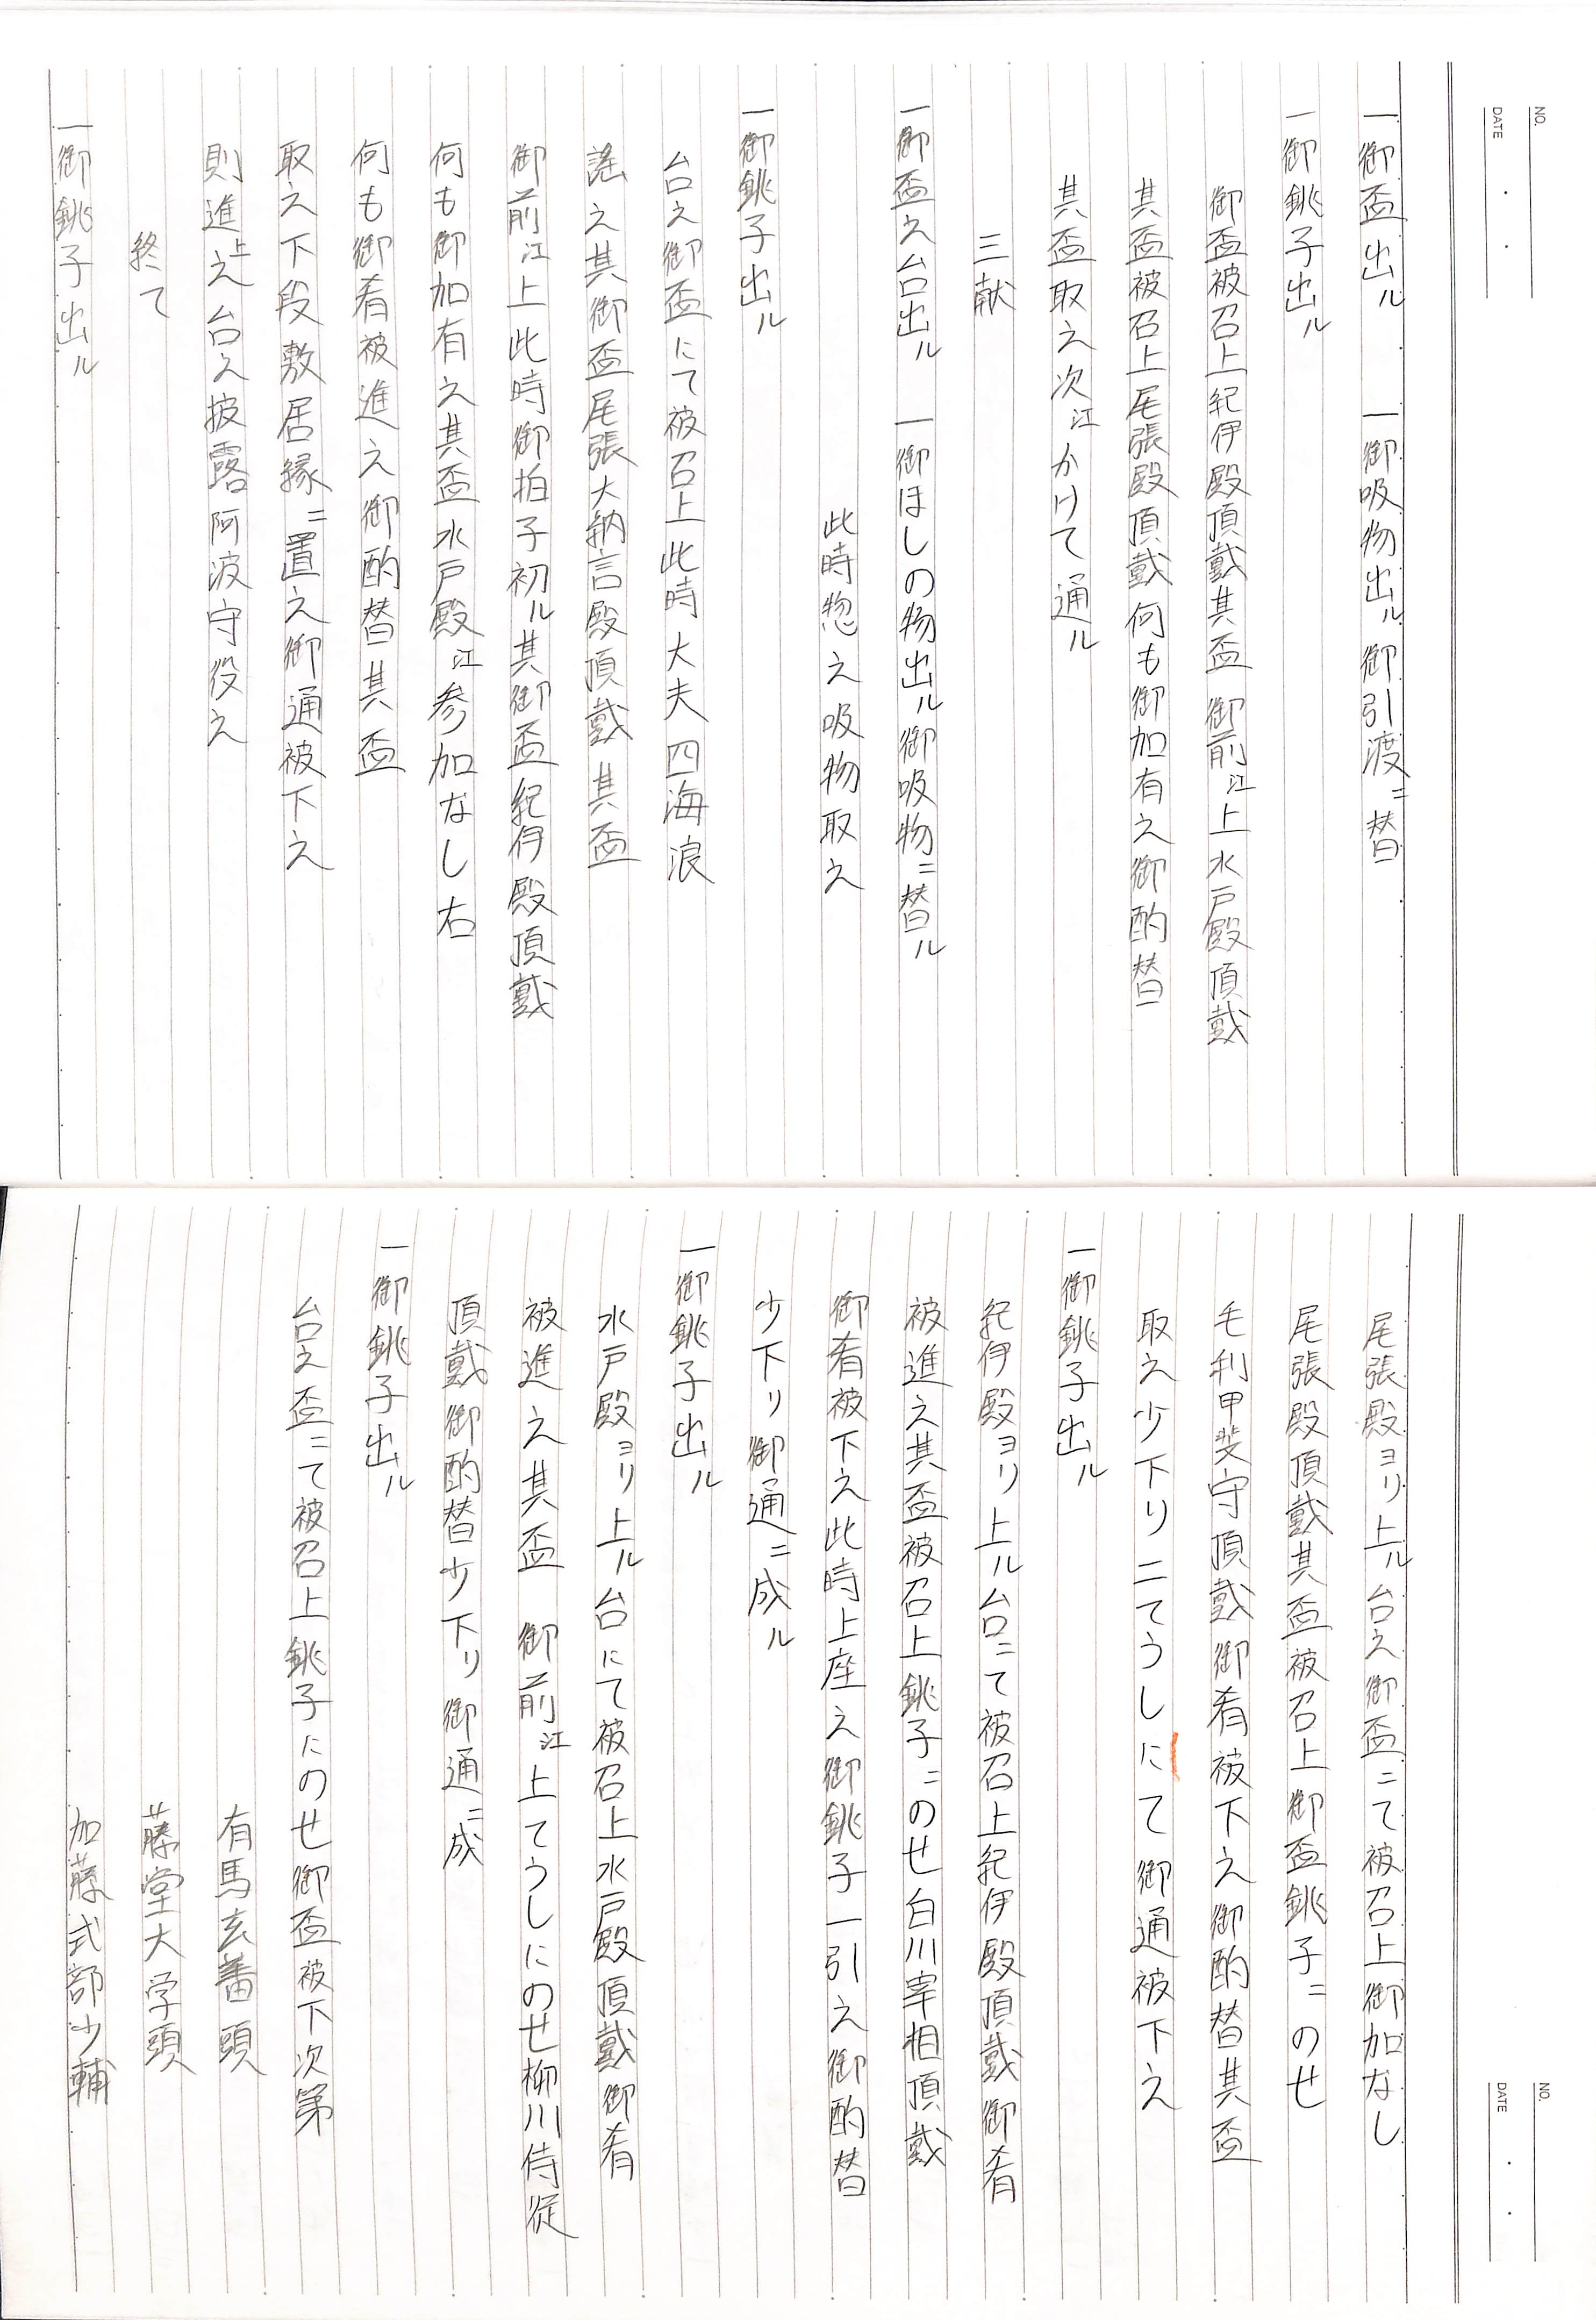 NO.
DATE
一御盃出ル　一御吸物出ル御引渡ニ替
一御銚子出ル
御盃被召上紀伊殿頂戴其盃　御前江上水戸殿頂戴
其盃被召上尾張殿頂戴何も御加有之御酌替
其盃取之次江かけて通ル
三献
一御盃之台出ル　一御ほしの物出ル御吸物ニ替ル
此時惣之吸物取之
一御銚子出ル
台之御盃にて被召上此時大夫四海浪
謡之其御盃尾張大納言殿頂戴其盃
御前江上此時御拍子初ル其御盃紀伊殿頂戴
何も御加有之其盃水戸殿江参加なし右
何も御肴被進之御酌替其盃
取之下段敷居縁ニ置之御通被下之
則進上之台之披露阿波守役之
終て
一御銚子出ル
NO.
DATE
尾張殿ヨリ上ル台之御盃ニて被召上御加なし
尾張殿頂戴其盃被召上御盃銚子ニのせ
毛利甲斐守頂戴御肴被下之御酌替其盃
取之少下リ二てうしにて御通被下之
一御銚子出ル
紀伊殿ヨリ上ル台ニて被召上紀伊殿頂戴御肴
被進之其盃被召上銚子ニのせ白川宰相頂戴
御肴被下之此時上座之御銚子一引之御酌替
少下リ御通ニ成ル
一御銚子出ル
水戸殿ヨリ上ル台にて被召上水戸殿頂戴御肴
被進之其盃　御前江上てうしにのせ柳川侍従
頂戴御酌替少下リ御通ニ成
一御銚子出ル
台之盃ニて被召上銚子にのせ御盃被下次第
有馬玄蕃頭
藤堂大学頭
加藤式部少輔